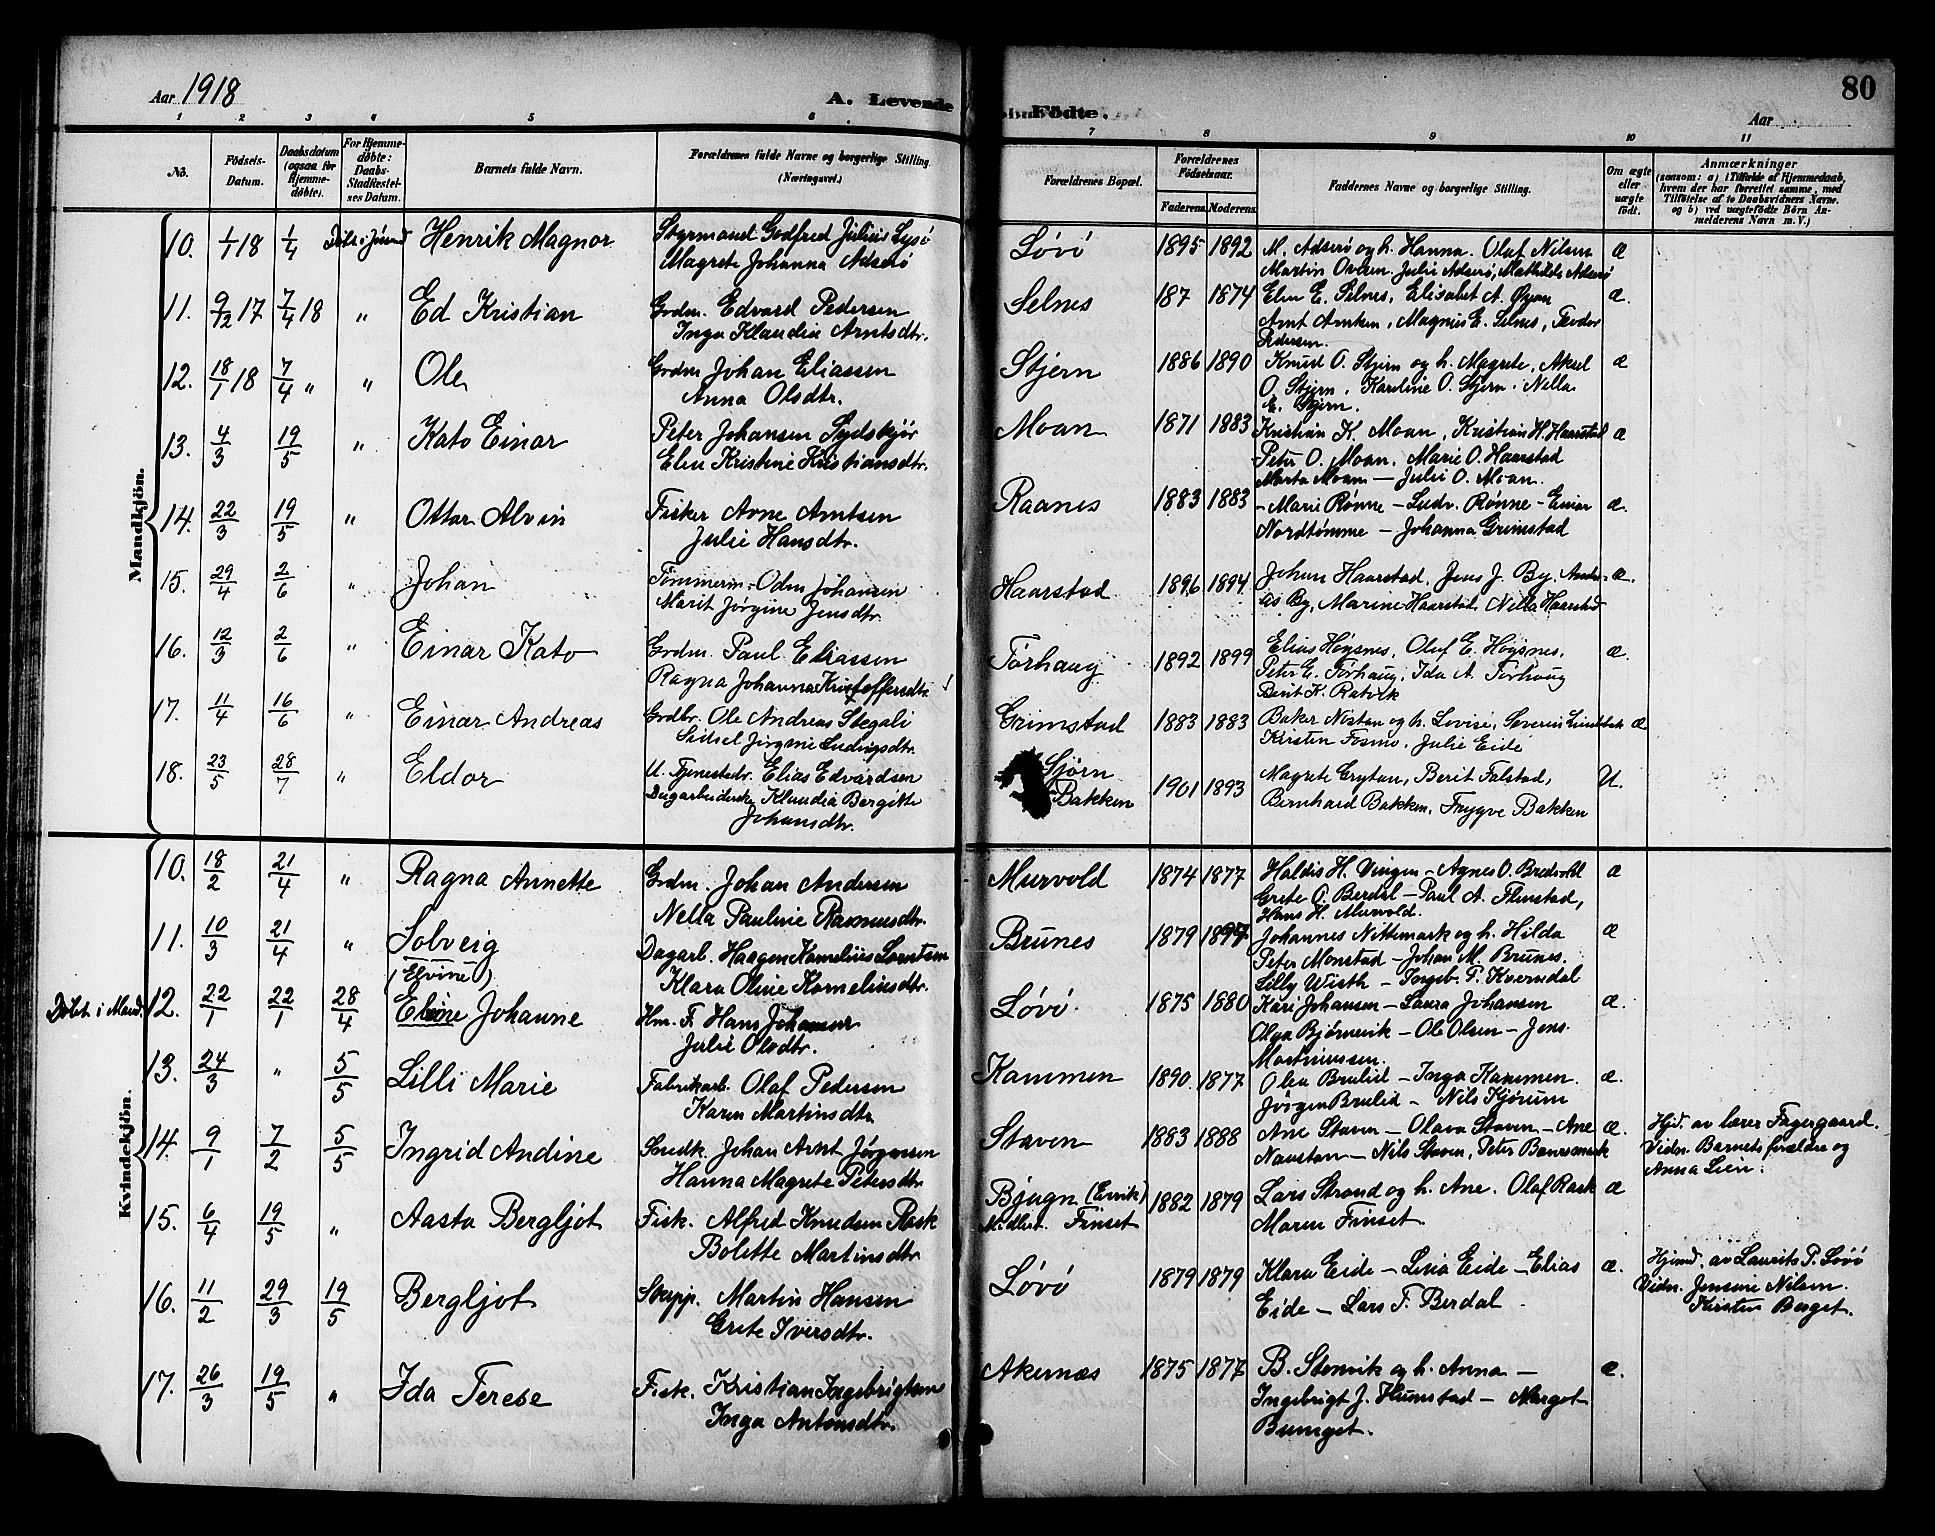 Aar 1918
A. Levende
Födte.
80
Aar
1 2 3 4 5 6 7 8 9 10 11
No.
Födsels-Datum.
Daabsdatum (ogsaa for Hjemme-döbte).
For Hjemme-döbte: Daabs-Stadfæstel-ses Datum.
Barnets fulde Navn.
Forældrenes fulde Navne og borgerlige Stilling. (Næringsvei.)
Forældrenes Bopæl.
Forældrenes Födselsaar.
Faderens. Moderens.
Faddernes Navne og borgerlige Stilling.
Om ægte eller uægte födt.
Anmærkninger
(saasom: a) i Tilfælde af Hjemmedaab,
hvem der har forrettet samme, med
Tilföielse af to Daabsvidners Navne.
og b) ved uægtefödte Börn An-
melderens Navn m. V.)
Mandkjön.
10. 1/1 18 1/4 Henrik Magnor Styrmand Godfred Julius Lysö Løvö 1895 1892 M. Adserö og h. Hanna. Olaf Nilsen æ
Magrete Johanna Adserö Martin Ovesen. Julie Adserö, Mathilde Adserö
11. 9/12 17 7/4 18 " Ed Kristian Grdm. Edvard Pedersen Selnes 187 1874 Elen E. Selnes, Elisabet A. Øyan æ.
Inga Klaudia Arntsdtr. Arnt Arntsen, Magnus E. Selnes, Teodor
Pedersen.
12. 18/1 18 7/4 " " Ole Grdm Johan Eliassen Stjern 1886 1890 Knut O. Stjern og h. Magrete, Aksel æ
Anna Olsdtr. O. Stjern, Karoline O. Stjern. Nella
E. Stjern.
13. 4/3 19/5 " Kato Einar Peter Johansen Sydskjør Moan 1871 1883 Kristian K. Moan, Kristian H. Haarstad æ
Elen Kristine Kristiansdtr. Peter O. Moan, Marie O. Haarstad
Marta Moan — Julie O. Moan.
14. 22/3 19/5 " Ottar Alvin Fisker Arne Arntsen Raanes 1883 1883 - Marie Rønne - Ludv. Rønne - Einar æ.
Julie Hansdtr. Nordtømme — Johanna Grimstad
15. 29/4 2/6 " Johan Tømmerm. Odin Johansen Haarstad 1896 1894 Johan Haarstad, Jens J. By, Andre- æ.
Marit Jørgine Jensdtr. as By, Marine Haarstad, Nella Haarstad
16. 12/3 2/6 " Einar Kato Grdm. Paul Eliassen Torhaug 1892 1899 Elias Høgsnes, Oluf E. Høgsnes, æ.
Ragna Johanna Kristoffersdtr. Peter E. Torhaug, Ida A. Torhaug
Berit K. Ratvik
17. 11/4 16/6 " Einar Andreas Grdbr. Ole Andreas Stegali Grimstad 1883 1883 Baker Nøstan og h. Lovise, Severin æ
Sidsel Jørgine Ludvigsdtr. Kirsten Fosmo, Julie Eide
18. 23/5 28/7 " Eldor U. Tjenestedr. Elias Edvardsen Stjørn 1901 1893 Magrete Grytan, Berit Falstad, U.
Klaudia Bergitte Bakken Bernhard Bakken, Trygve Bakken
Johansdtr.
Kvindekjön.
10. 18/2 21/4 " Ragna Annette Grdm. Johan Andersen Murvold 1874 1877 Haldis H. Vingen - Agnes O. Bredvold æ
Nella Pauline Rasmusdtr. Grete O. Berdal — Paul A. Flenstad,
Hans H. Murvold.
11. 10/3 21/4 " Solveig Dagarb. Haagen Kornelius Lorntsen Brunes 1879 1897 Johannes Nittemark og h. Hilda æ
(Elvine) Klara Oline Kornelinsdtr. Peter Monstad - Johan M. Brunes.
Lilly Wisth - Ingeb. P. Kverndal
Døbt i Mand. 12. 22/1 22/1 28/4 Elvine Johanne Hm. F. Hans Johansen Løvö. 1875 1880 Kari Johansen - Laura Johansen æ.
Julie Olsdtr. Olga Bjørnevik - Ole Olsen - Jens
Martinussen.
13. 24/3 " 5/5 Lilli Marie Fabrikarb. Olaf Pedersen Kammen 1890 1877 Olea Brulid - Inga Kammen. æ.
Karen Martinsdtr Jørgen Brulid - Nils Kjørum
14. 9/1 7/2 5/5 Ingrid Andine Smedk. Johan Arnt Jørgensen Staven 1883 1888 Ane Staven - Olava Staven - Ane æ. Hjd. av lærer Fagergaard.
Hanna Magrete Petersdtr. Naustan - Nils Staven, Peter Vidn. Barnets forældre og
Anna Lien.
15. 6/4 19/5 " Aasta Bergljot Fisk. Alfred Knudsen Rask Bjugn (Ervik) 1882 1879 Lars Strand og h. Ane. Olaf Rask æ
Bolette Martinsdtr Midlert. Finset Maren Finset.
16. 11/2 29/3 19/5 Bergljot Skipp. Martin Hansen Løvö 1879 1879 Klara Eide - Lina Eide - Elias æ. Hjmd. av Laurits P. Løvö
Grete Iversdtr. Eide - Lars T. Berdal. Vidn. Jensine Nilsen
Kirsten Berget.
17. 26/3 19/5 " Ida Terese Fisk. Kristian Ingebrigtsen Akernæs 1875 1877 B. Stenvik og h. Anna - æ.
Inga Antonsdtr. Ingebrigt J. Humstad - Margot